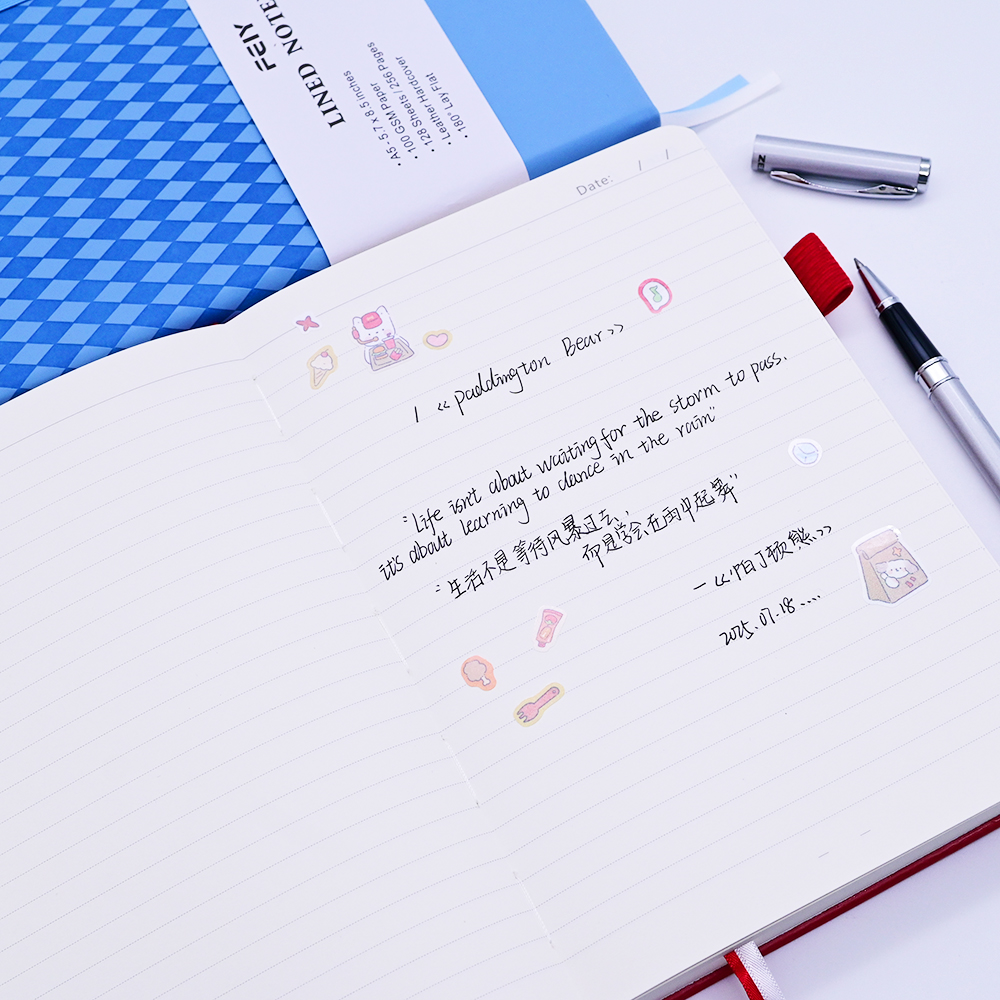 FEIY
LINED NOTE
• A5 - 5.7 x 8.5 inches
• 100 GSM Paper
• 128 Sheets / 256 Pages
• Leather Hardcover
• 180° Lay Flat
Date: / /
/ << Paddington Bear >>
"Life isn't about waiting for the storm to pass.
it's about learning to dance in the rain"
"生活不是等待风暴过去,
而是学会在雨中起舞"
— 《帕丁顿熊》
2025.07.18....